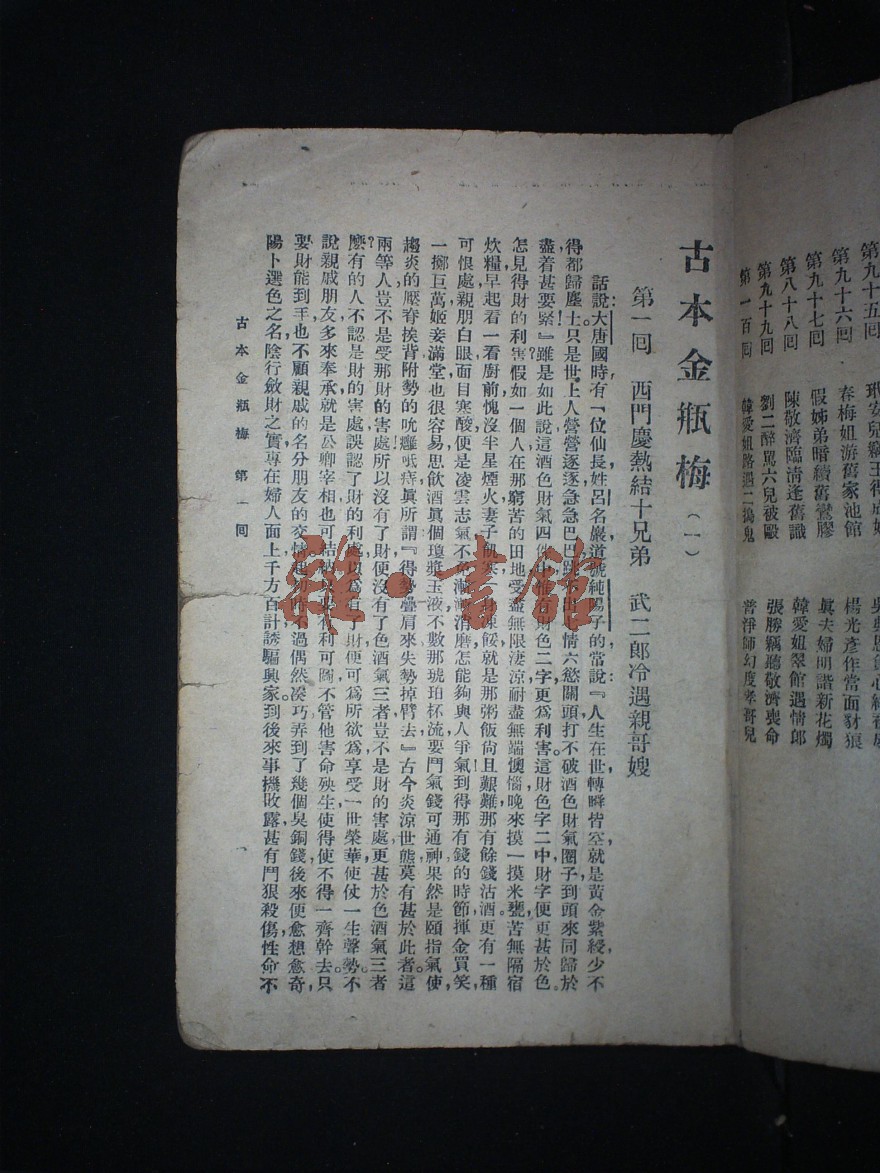 第九十五回　玳安兒竊玉
第九十六回　春梅姐游舊家池館　楊光彥作當面豺狼
第九十七回　假姊弟暗續舊鸞膠　眞夫婦明諧新花燭
第八十八回　陳敬濟臨清逢舊識　韓愛姐翠館遇情郎
第九十九回　劉二醉罵六兒被毆　張勝竊聽敬濟喪命
第一百回　韓愛姐路遇二搗鬼　普淨師幻度孝哥兒
古本金瓶梅（一）
第一回　西門慶熱結十兄弟　武二郎冷遇親哥嫂
話說大唐國時有一位仙長姓呂名巖道號純陽子的常說『人生在世轉瞬皆空就是黃金紫綬少不
得都歸塵土只是世上人營營逐逐急急巴巴跳不出七情六慾關頭打不破酒色財氣圈子到頭來同歸於
盡着甚要緊』雖是如此說這酒色財氣四件中惟有財色二字更爲利害。這財色字二中財字便更甚於色。
怎見得財的利害？假如一個人在那窮苦的田地受盡無限淒涼耐盡無端懊惱晚來摸一摸米甕苦無隔宿
炊糧早起看一看廚前愧沒半星煙火妻子飢寒一身凍餒就是那粥飯尙且艱難那有餘錢沽酒更有一種
可恨處親朋白眼面目寒酸便是凌雲志氣不免漸漸消磨怎能夠與人爭氣到得那有錢的時節揮金買笑
一擲巨萬姬妾滿堂也很容易思飲酒眞個瓊漿玉液不數那琥珀杯流要鬥氣錢可通神果然是頤指氣使
趨炎的壓脊挨背附勢的吮癰舐痔眞所謂『得勢疊肩來失勢掉臂去』古今炎涼世態莫有甚於此者。這
兩等人豈不是受那財的害處所以沒有了財便沒有了色酒氣三者豈不是財的害處更甚於色酒氣三者
？麼有的人不認是財的害處誤認了財的利處以爲有了財便可爲所欲爲享受一世榮華使仗一生聲勢。不
說親戚朋友多來奉承就是公卿宰相也可結納只要有利可圖不管他害命殃生使得使不得一齊幹去。只
要財能到手也不顧親戚的名分朋友的交情起初時不過偶然湊巧弄到了幾個臭銅錢後來便愈想愈奇，
陽卜選色之名陰行斂財之實專在婦人面上千方百計誘騙興家。到後來事機敗露甚有鬥狠殺傷性命不
古本金瓶梅　第一回
雜·書館